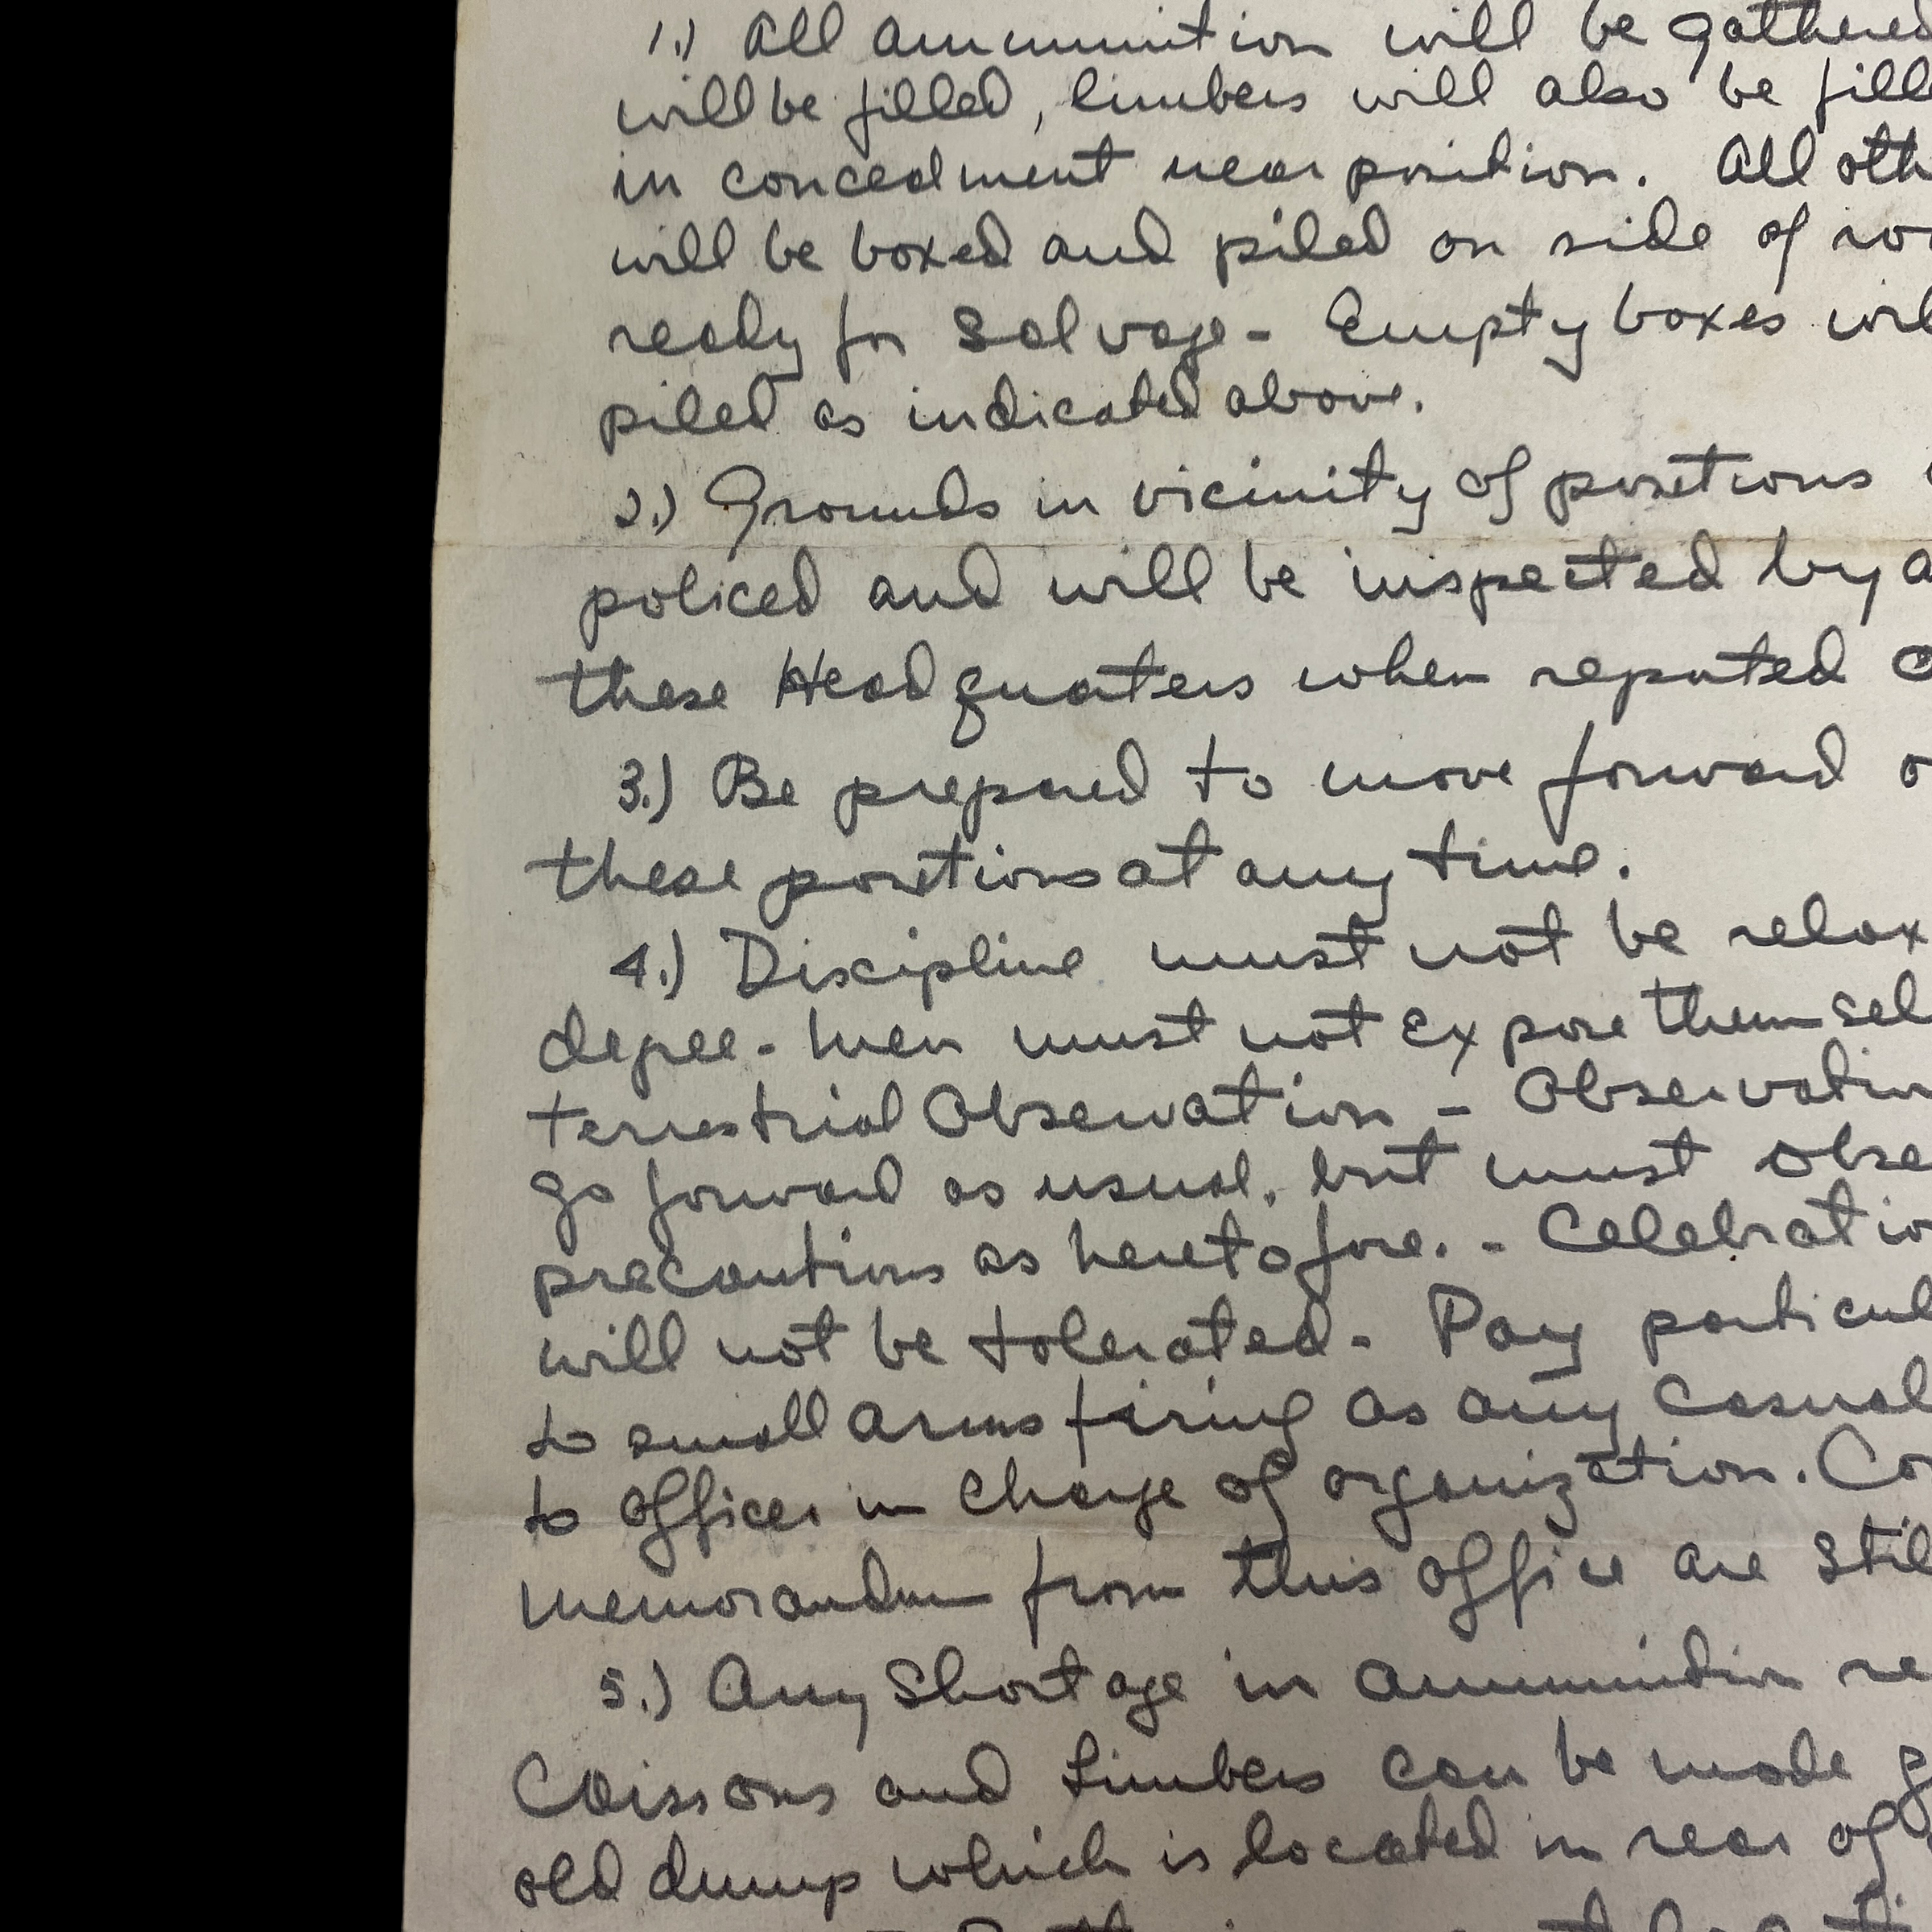 1.) All ammunition will be gathered
will be filled, limbers will also be fill
in concealment near position. All oth
will be boxed and piled on side of ro
ready for Salvage - Empty boxes wil
piled as indicated above.
2.) Grounds in vicinity of positions
policed and will be inspected by a
these Headquarters when reported
3.) Be prepared to move forward o
these positions at any time.
4.) Discipline must not be relax
degree - Men must not Expose themsel
terrestrial Observation - Observation
go forward as usual, but must obse
precautions as heretofore. - Celebratio
will not be tolerated - Pay particul
to small arms firing as any Casual
to officer in Charge of organization. Co
Memorandum from this office are Stil
5.) Any Shortage in ammunition re
Caissons and Limbers can be made g
old dump which is located in rear of